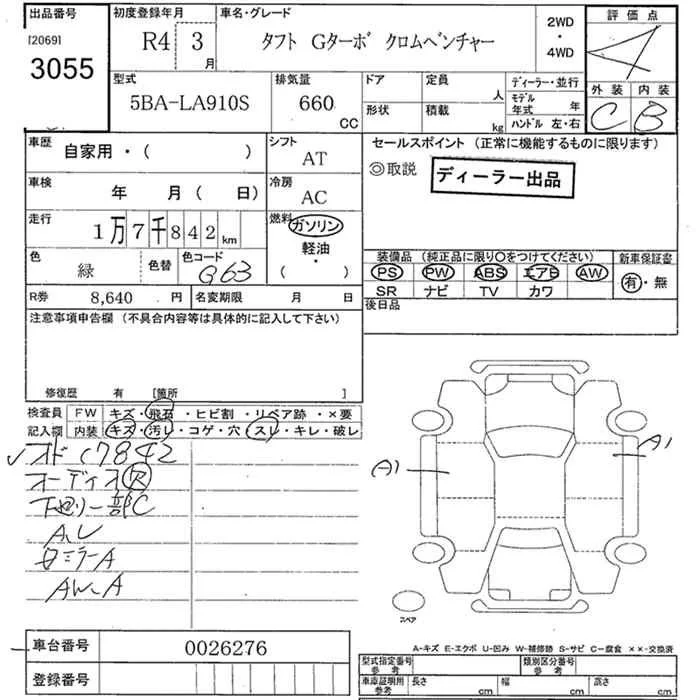 出品番号
[2069]
3055
初度登録年月
R4 3
月
車名・グレード
タフト Gターボ クロムベンチャー
2WD
・
4WD
評価点
4
外装 内装
C B
型式
5BA-LA910S
排気量
660
CC
ドア
形状
定員
人
積載
kg
ディーラー・並行
モデル年式 年
ハンドル 左・右
車歴
自家用・( )
シフト
AT
車検
年 月( 日)
冷房
AC
走行
1万7千842km
燃料
ガソリン
軽油
・
( )
色
緑
色替
色コード
G63
R券 8,640 円
名変期限 月 日
セールスポイント(正常に機能するものに限ります)
◎取説
ディーラー出品
装備品 (純正品に限り〇をつけてください)
PS PW ABS エアB AW
SR ナビ TV カワ
新車保証書
有・無
後日品
注意事項申告欄 (不具合内容等は具体的に記入して下さい)
修復歴 有 [箇所 ]
検査員
記入欄
FW キズ・飛石・ヒビ割・リペア跡・×要
内装 キズ・汚レ・コゲ・穴・スレ・キレ・破レ
✓オド17842
オーディオR
下廻り一部C
A,U
ミラーA
AW.A
A1
A1
スペア
車台番号 0026276
登録番号
A-キズ E-エクボ U-凹み W-補修跡 S-サビ C-腐食 ××-交換済
型式指定番号
参考
類別区分番号
参考
車庫証明用
参考
長さ cm
幅 cm
高さ cm